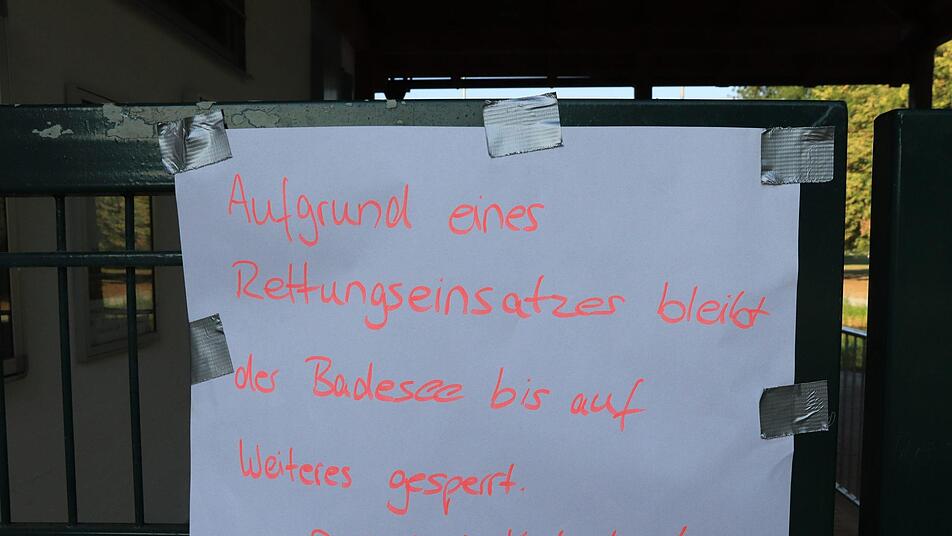 Aufgrund eines
Rettungseinsatzes bleibt
der Badesee bis auf
Weiteres gesperrt.